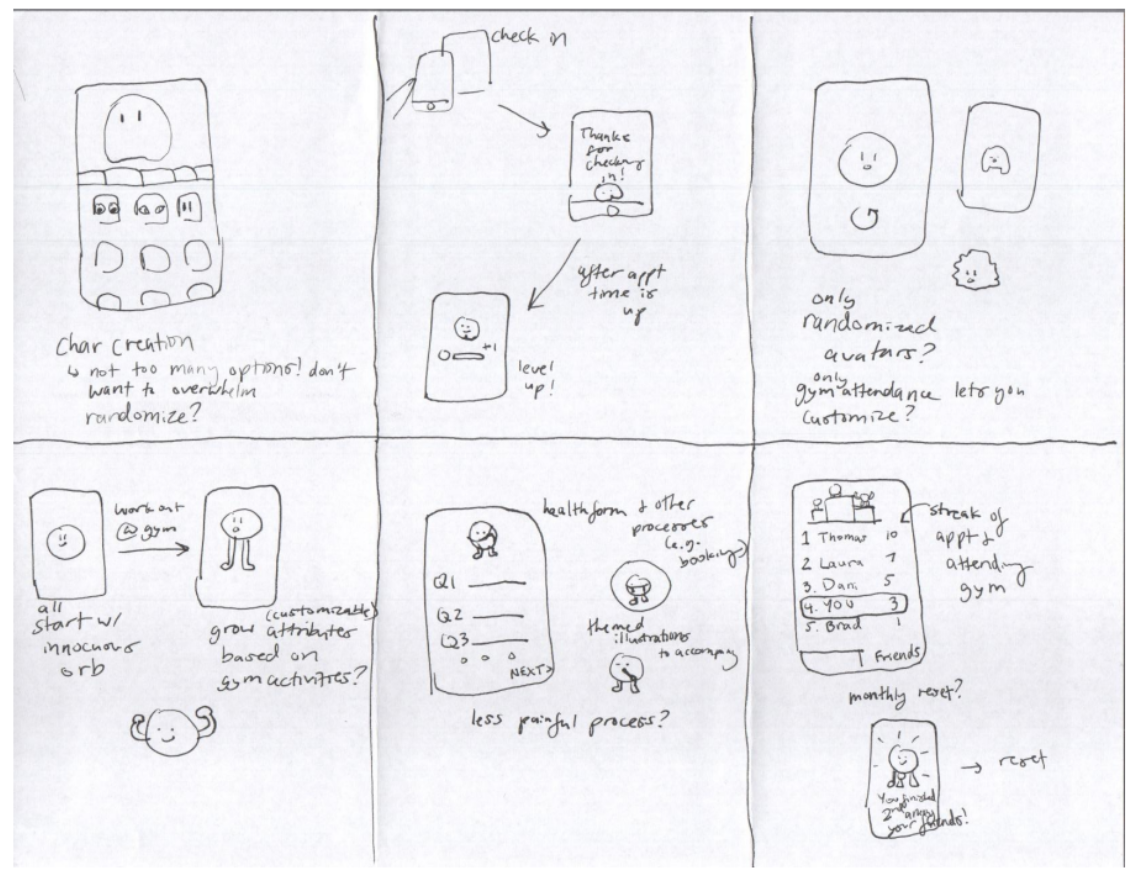 Char Creation
↳ not too many options! don't
want to overwhelm
randomize?
check in
Thanks
for
checking
in!
after appt
time is
up
+1
level
up!
only
randomized
avatars?
only
gym attendance lets you
customize?
work out
@ gym
all
start w/
innocuous
orb
(customizable)
grow attributes
based on
gym activities?
Q1
Q2
Q3
NEXT>
health form & other
processes
(e.g.
booking)
themed
illustrations
to accompany
less painful process?
1 Thomas 10
2 Laura 7
3. Dan 5
4. YOU 3
5. Brad 1
Friends
streak of
appt &
attending
gym
monthly reset?
You finished
2nd among
your friends!
→ reset